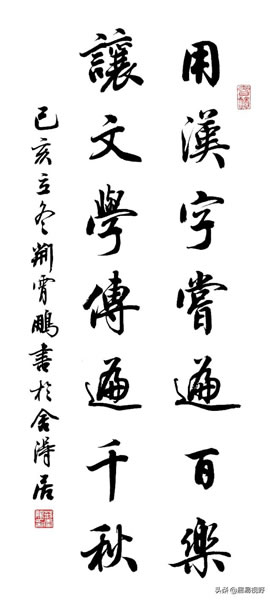 用漢字嘗遍百樂
讓文學傳遍千秋
己亥立冬荆霄鵬書於舍得居
头条@鹿鸣视野